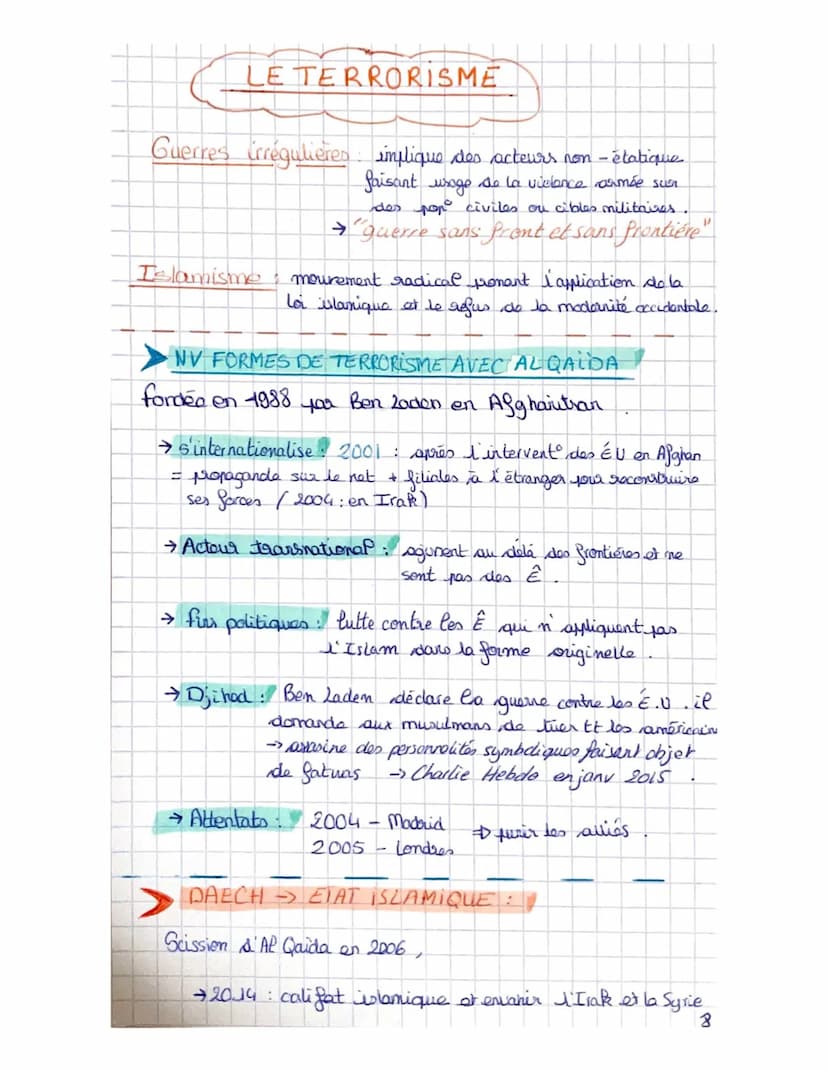 LE TERRORISME
Guerres irrégulières : implique des acteurs non-étatique
faisant usage de la violence armée sur
des pop° civiles ou cibles militaires.
→ "guerre sans front et sans frontière"
Islamisme : mouvement radical prenant l'application de la
loi islamique et le refus de la modernité occidentale.
NV FORMES DE TERRORISME AVEC AL QAÏDA
fondée en 1988 par Ben Laden en Afghanistan
→ s'internationalise : 2001 : après l'intervent° des ÉU en Afghan
= propaganda sur le net + filiales à l'étranger pour reconstruire
ses forces (2004 : en Irak)
→ Acteur transnational : agissent au délà des frontières et ne
sont pas des Ê.
→ fins politiques : lutte contre les Ê qui n'appliquent pas
l'Islam dans la forme originelle.
→ Djihad : Ben Laden déclare la guerre contre les É.U. il
demande aux musulmans de tuer tt les américain
→ assasine des personnalités symboliques faisant objet
de fatwas → Charlie Hebdo en janv 2015.
→ Attentats : 2004 - Madrid ⇒ punir les alliés.
2005 - Londres
DAECH → ETAT ISLAMIQUE :
Scission d'Al Qaida en 2006,
→ 2014 : califat islamique et envahir l'Irak et la Syrie
8